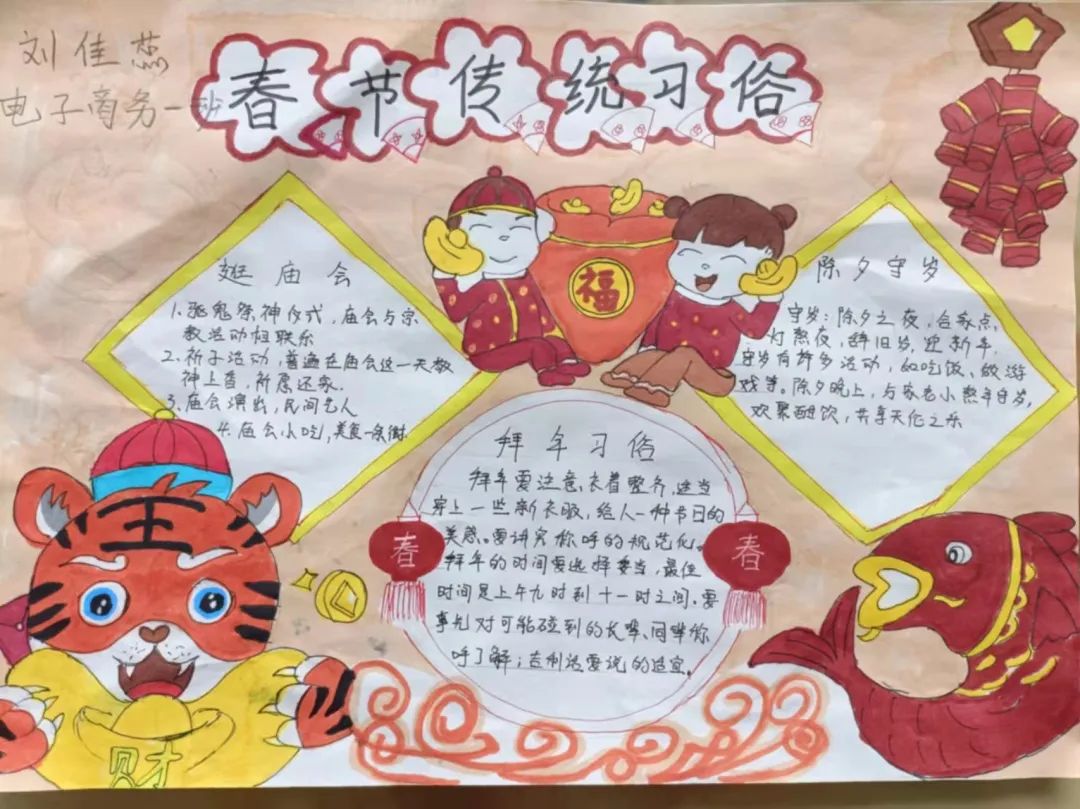 刘佳蕊
电子商务一班
春节传统习俗
福
逛庙会
1.驱鬼祭神仪式,庙会与宗
教活动相联乐
2.祈子活动,普遍在庙会这一天敬
神上香,祈愿还家.
3.庙会演出,民间艺人
4.庙会小吃,美食一条街
除夕守岁
守岁:除夕之夜,合家点
灯熬夜,辞旧岁,迎新年,
守岁有许多活动,如吃饭、做游
戏等。除夕晚上,与家老小熬年守岁,
欢聚酣饮,共享天伦之乐
拜年习俗
拜年要注意、衣着整齐,适当
穿上一些新衣服,给人一种节日的
美感。要讲究称呼的规范化。
拜年的时间要选择妥当,最佳
时间是上午九时到十一时之间、要
事先对可能碰到的长辈、同辈称
呼了解;吉利话要说的适宜。
春
春
王
财